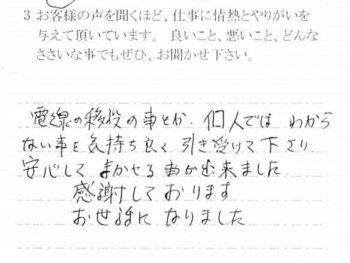 3 お客様の声を聞くほど、仕事に情熱とやりがいを
与えて頂いています。 良いこと、悪いこと、どんな
ささいな事でもぜひ、お聞かせ下さい。
電線の移設の事とか、個人では わから
ない事を 気持ち良く 引き受けて下さり
安心して まかせる 事が出来ました
感謝して おります
お世話に なりました